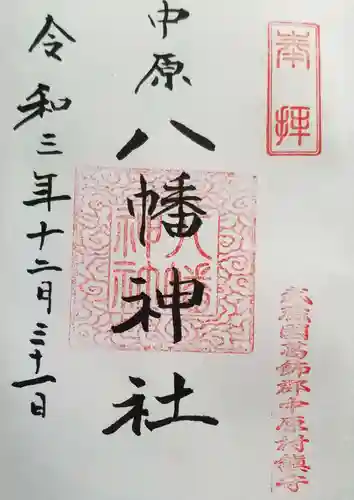 奉拝
武蔵國葛飾郡中原村鎮守
中原
八幡神社
八幡神社
令和三年十二月三十一日